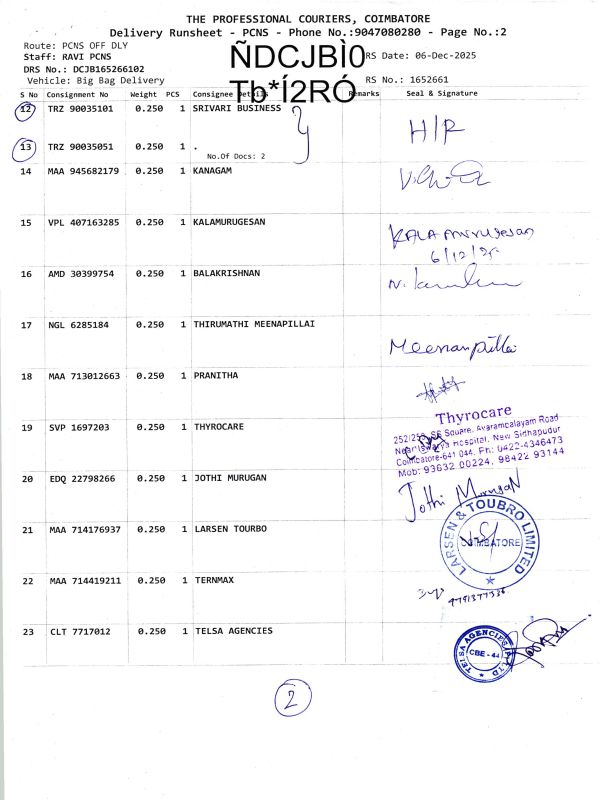 THE PROFESSIONAL COURIERS, COIMBATORE
Delivery Runsheet - PCNS - Phone No.:9047080280 - Page No.:2
Route: PCNS OFF DLY
Staff: RAVI PCNS
ÑDCJBÌ0
RS Date: 06-Dec-2025
DRS No.: DCJB165266102
Vehicle: Big Bag Delivery
Tb*Í2RÓ
RS No.: 1652661
S No Consignment No Weight PCS Consignee Details Remarks Seal & Signature
12 TRZ 90035101 0.250 1 SRIVARI BUSINESS
H/R
13 TRZ 90035051 0.250 1 .
No.Of Docs: 2
14 MAA 945682179 0.250 1 KANAGAM
15 VPL 407163285 0.250 1 KALAMURUGESAN
KALA Murugesan
6/12/25
16 AMD 30399754 0.250 1 BALAKRISHNAN
17 NGL 6285184 0.250 1 THIRUMATHI MEENAPILLAI
Meenanpillai
18 MAA 713012663 0.250 1 PRANITHA
19 SVP 1697203 0.250 1 THYROCARE
Thyrocare
SF Square, Avarampalayam Road
Hospital, New Sidhapudur
Coimbatore-641 044. Ph: 0422-4346473
Mob: 93632 00224, 98422 93144
20 EDQ 22798266 0.250 1 JOTHI MURUGAN
Jothi Murugan
21 MAA 714176937 0.250 1 LARSEN TOURBO
LARSEN & TOUBRO LIMITED
COIMBATORE
22 MAA 714419211 0.250 1 TERNMAX
9791377336
23 CLT 7717012 0.250 1 TELSA AGENCIES
TELSA AGENCIES P LTD
CBE - 44
2